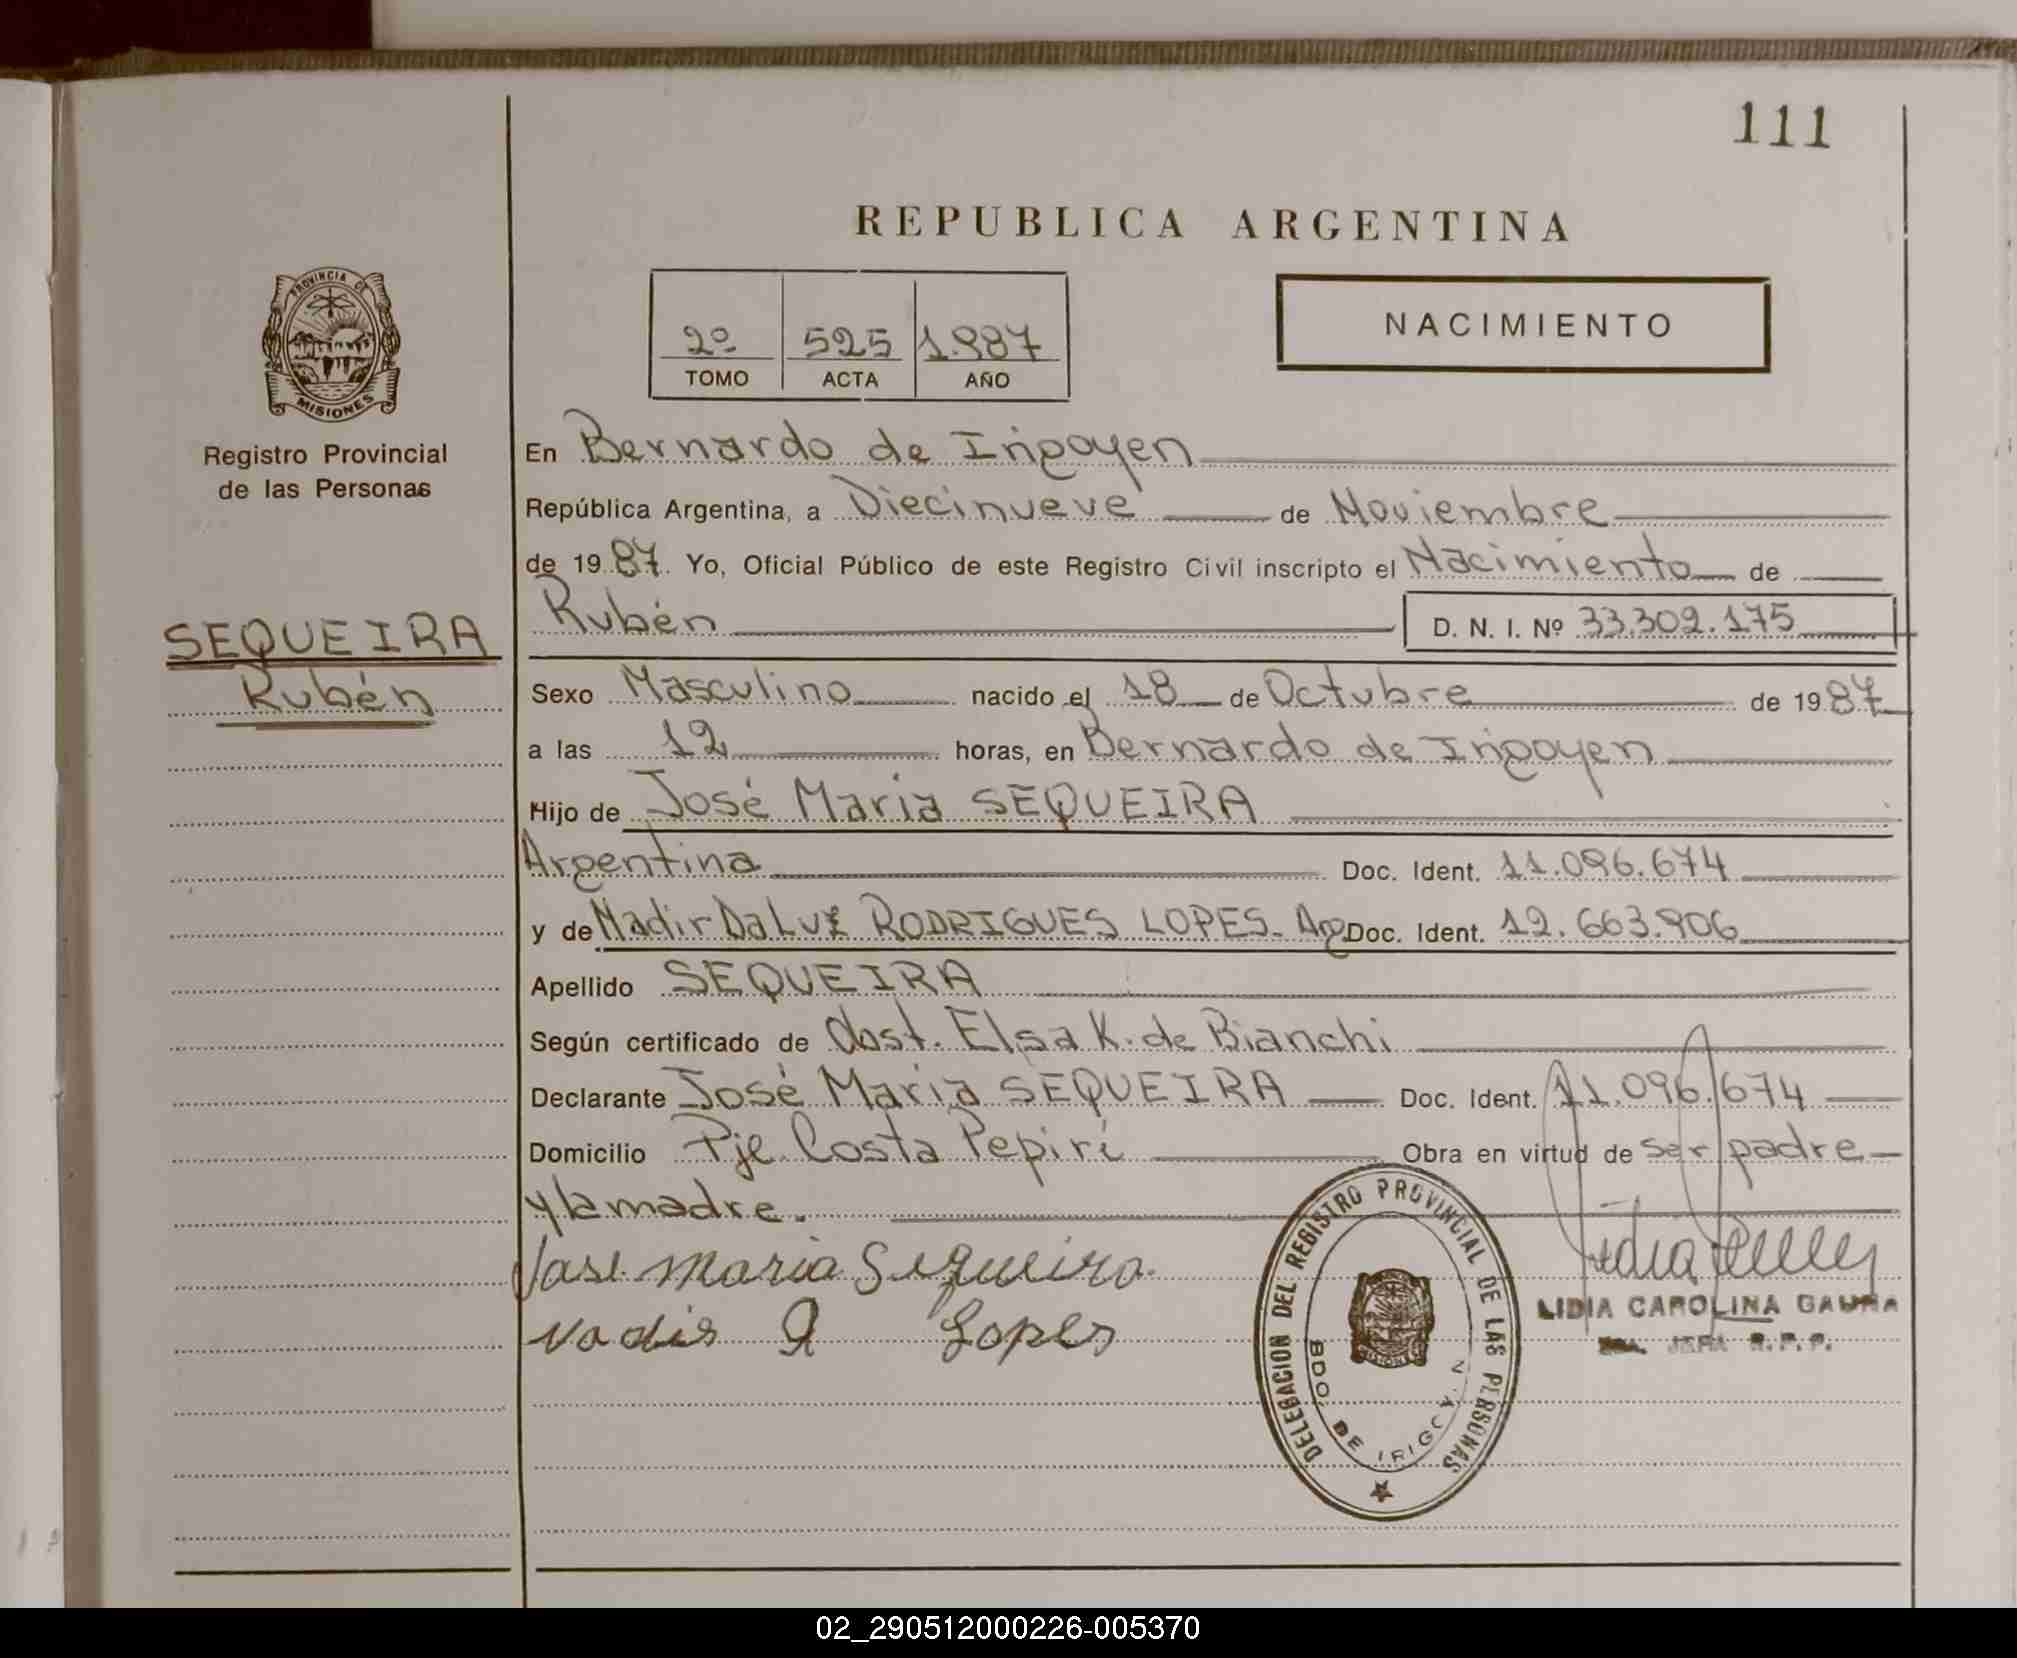 111
REPUBLICA ARGENTINA
PROVINCIA DE
MISIONES
Registro Provincial
de las Personas
2º 525 1.987
TOMO ACTA AÑO
NACIMIENTO
En Bernardo de Irigoyen
República Argentina, a Diecinueve de Noviembre
de 1987. Yo, Oficial Público de este Registro Civil inscripto el Nacimiento de
Rubén D. N. I. Nº 33.302.175
SEQUEIRA
Rubén
Sexo Masculino nacido el 18 de Octubre de 1987
a las 12 horas, en Bernardo de Irigoyen
Hijo de José Maria SEQUEIRA
Argentina Doc. Ident. 11.096.674
y de Nadir Da Luz RODRIGUES LOPES. Arg Doc. Ident. 12.663.906
Apellido SEQUEIRA
Según certificado de Obst. Elsa K. de Bianchi
Declarante José Maria SEQUEIRA Doc. Ident. 11.096.674
Domicilio Pje Costa Pepirí Obra en virtud de ser padre
y la madre.
José Maria Sequeira
Nadir R Lopes
DELEGACION DEL REGISTRO PROVINCIAL DE LAS PERSONAS
MISIONES
BDO. DE IRIGOYEN
LIDIA CAROLINA GAUNA
JEFA R.P.P.
02_290512000226-005370